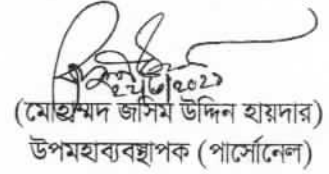 ২২/৬/২০২১
(মোহাম্মদ জসিম উদ্দিন হায়দার)
উপমহাব্যবস্থাপক (পার্সোনেল)